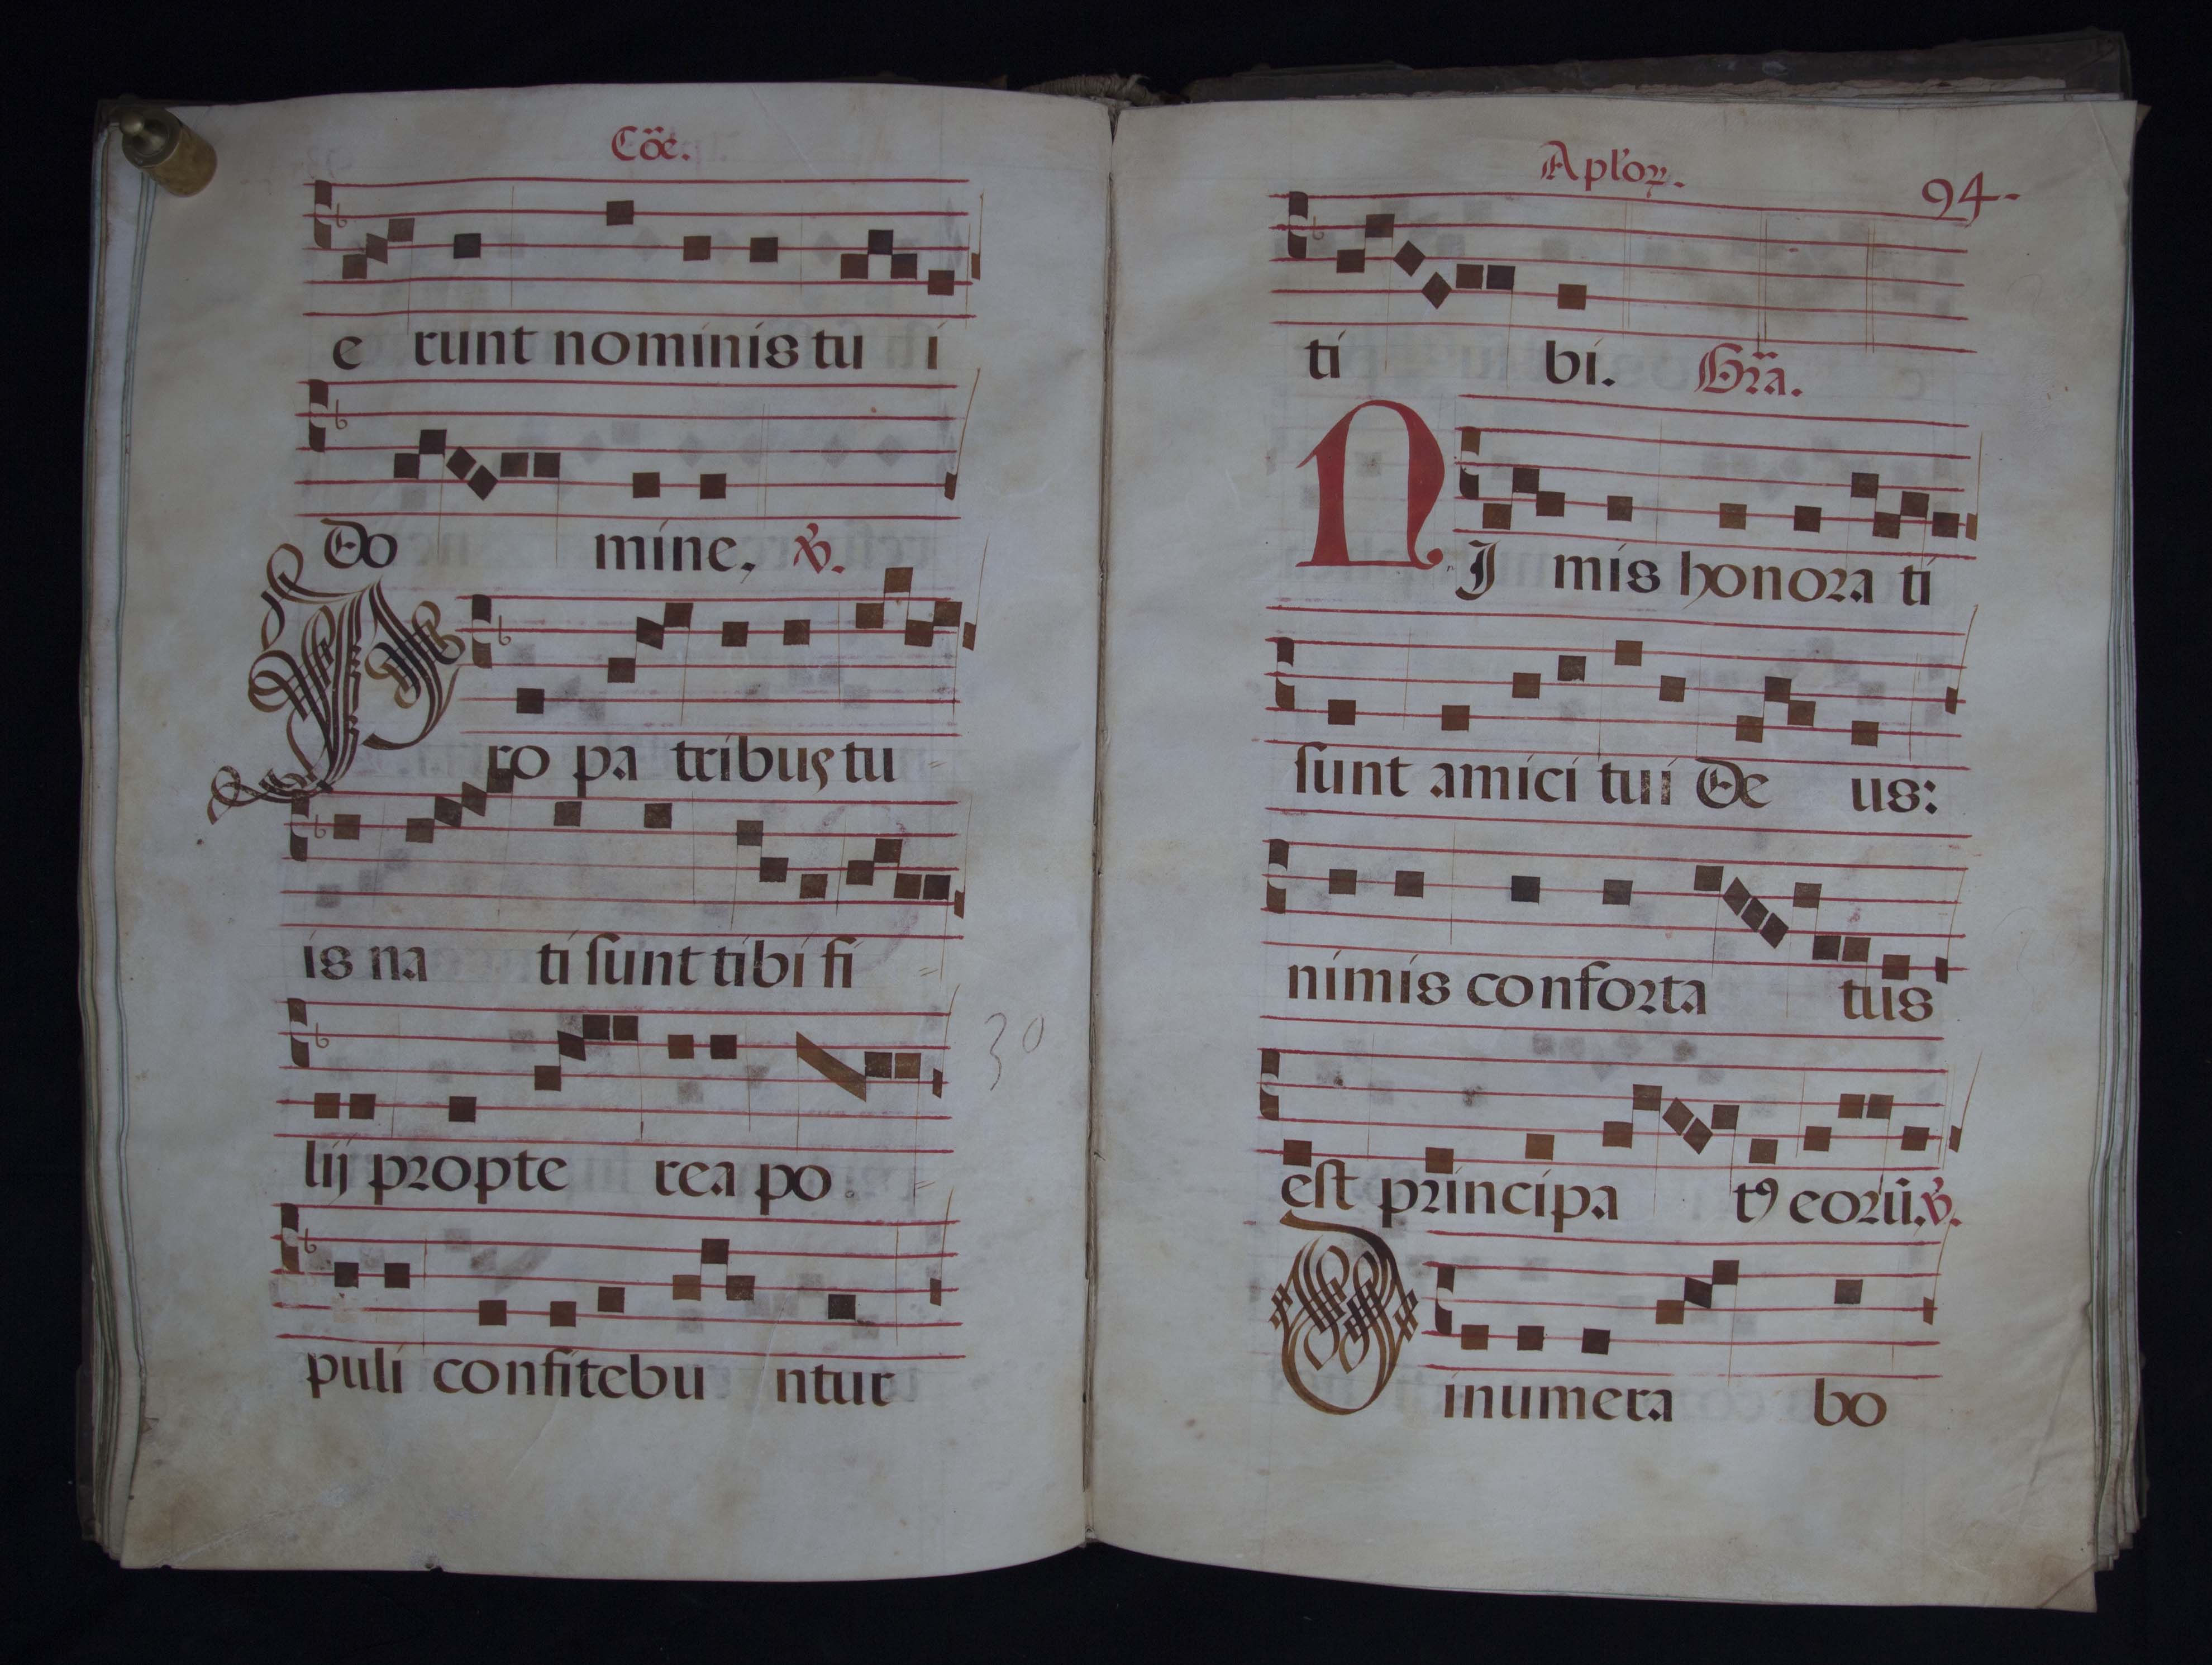 Cōe.
e runt nominis tu i
Do mine, ℣.
Pro pa tribus tu=
is na ti sunt tibi fi=
lij propte rea po=
puli confitebu ntur
30
Aplor̄.
94.
ti bi. Gr̄a.
NJ mis honora ti
sunt amici tui De us:
nimis conforta tus
est principa tꝰ eorū. ℣.
Dinumera bo